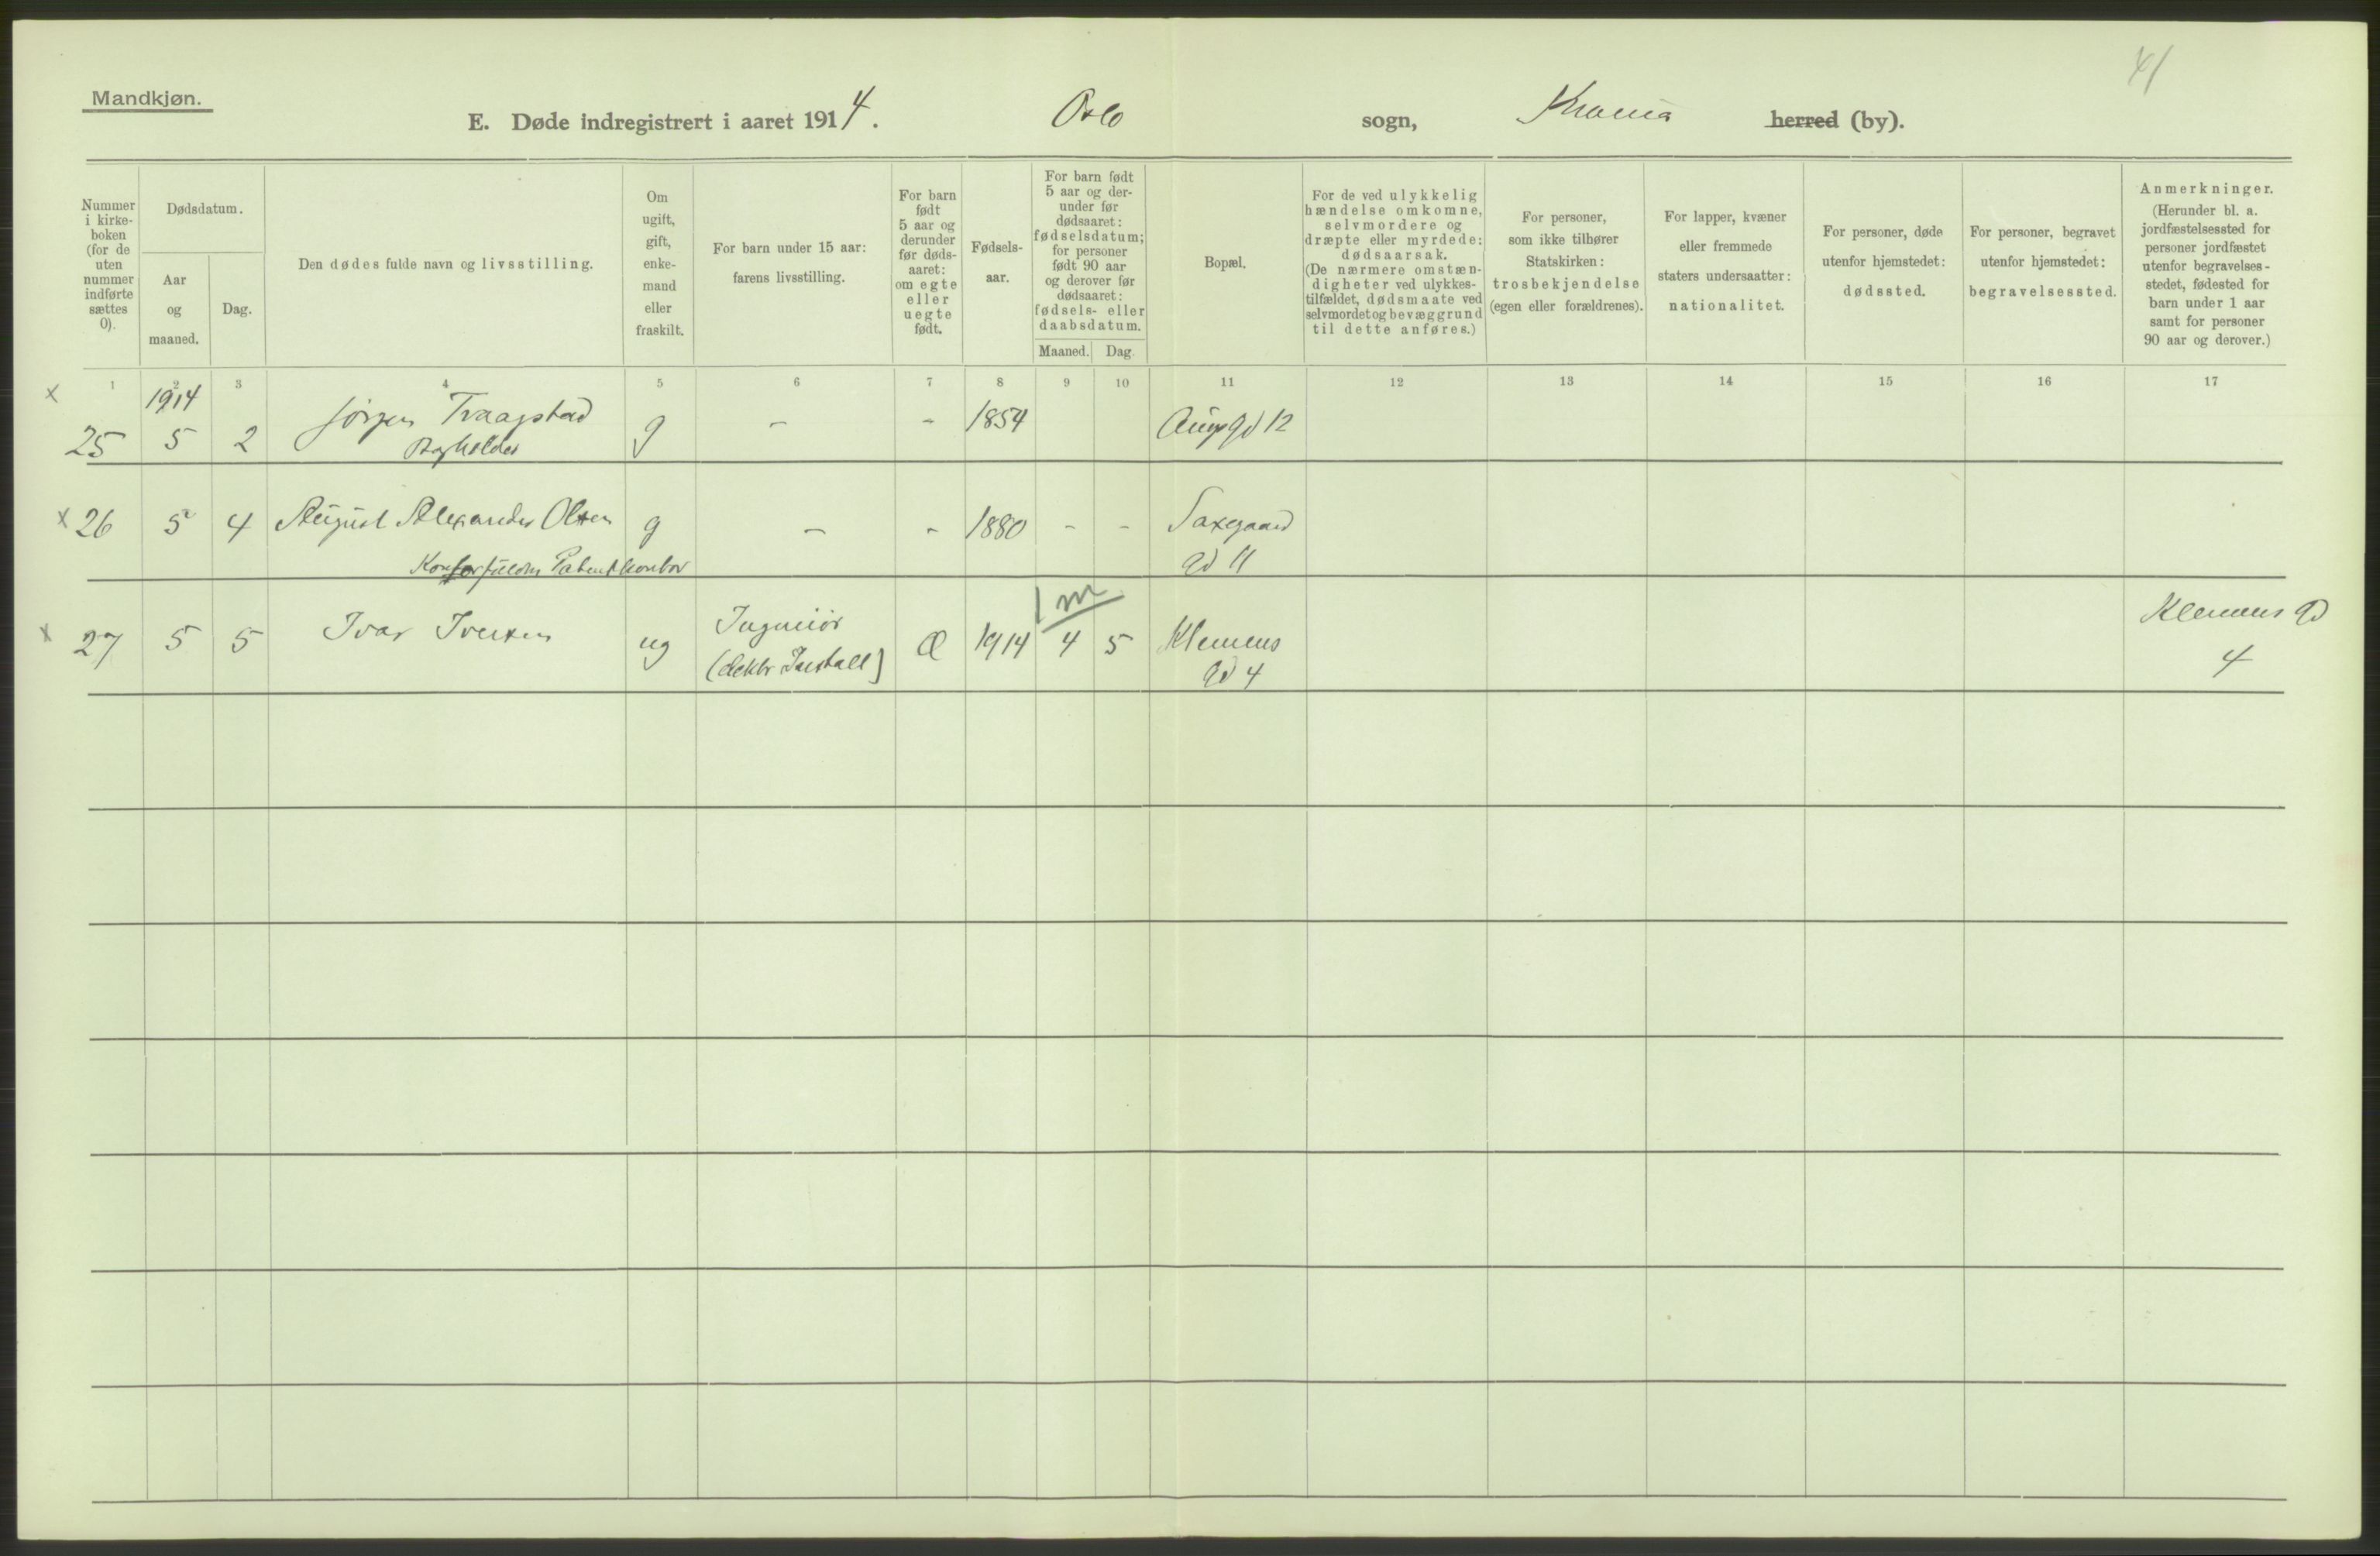 41
Mandkjøn.
E. Døde indregistrert i aaret 1914. Oslo sogn, Krania herred (by).
Nummer i kirke-boken (for de uten nummer indførte sættes 0).
Dødsdatum.
Aar og maaned.
Dag.
Den dødes fulde navn og livsstilling.
Om ugift, gift, enke-mand eller fraskilt.
For barn under 15 aar: farens livsstilling.
For barn født 5 aar og derunder før døds-aaret: om egte eller uegte født.
Fødsels-aar.
For barn født 5 aar og der-under før dødsaaret: fødselsdatum; for personer født 90 aar og derover før dødsaaret: fødsels- eller daabsdatum.
Maaned. Dag.
Bopæl.
For de ved ulykkelig hændelse omkomne, selvmordere og dræpte eller myrdede: dødsaarsak. (De nærmere omstæn-digheter ved ulykkes-tilfældet, dødsmaate ved selvmordet og bevæggrund til dette anføres.)
For personer, som ikke tilhører Statskirken: trosbekjendelse (egen eller forældrenes).
For lapper, kvæner eller fremmede staters undersaatter: nationalitet.
For personer, døde utenfor hjemstedet: dødssted.
For personer, begravet utenfor hjemstedet: begravelsessted.
Anmerkninger. (Herunder bl. a. jordfæstelsessted for personer jordfæstet utenfor begravelses-stedet, fødested for barn under 1 aar samt for personer 90 aar og derover.)
1 2 3 4 5 6 7 8 9 10 11 12 13 14 15 16 17
1914
x 25 5 2 Jørgen Traagstad g - - 1854 Aug gd 12
Bogholder
x 26 5 4 August Alexander Olsen g - - 1880 - - Saxegaard
Patentkontor gd 11
1 m
x 27 5 5 Ivar Iversen ug Ingeniør Æ 1914 4 5 Klemens Klemens gd
(elektr Install) gd 4 4